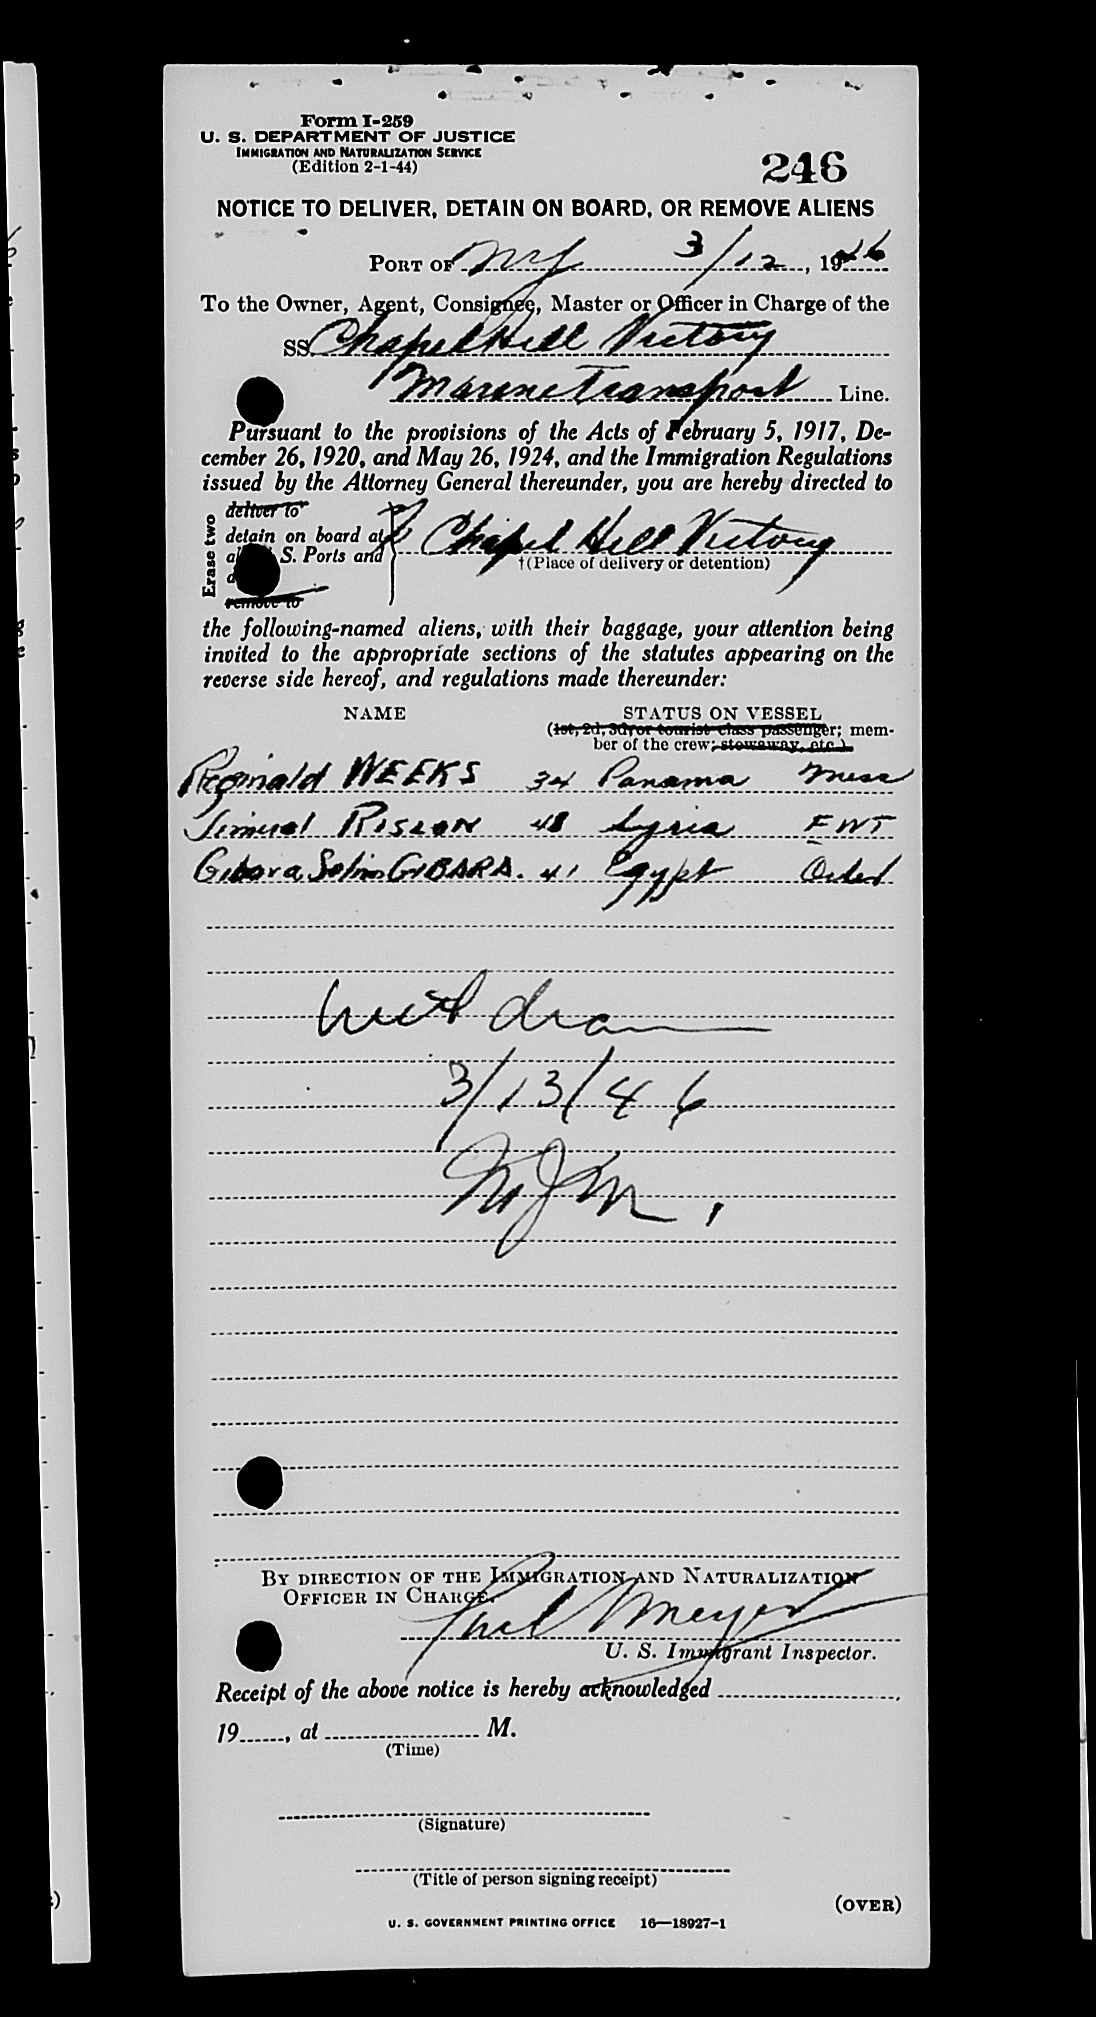 Form I-259
U. S. DEPARTMENT OF JUSTICE
IMMIGRATION AND NATURALIZATION SERVICE
(Edition 2-1-44)
246
NOTICE TO DELIVER, DETAIN ON BOARD, OR REMOVE ALIENS
PORT OF NY 3/12, 1946
To the Owner, Agent, Consignee, Master or Officer in Charge of the
SS Chapel Hill Victory
Marine Transport Line.
Pursuant to the provisions of the Acts of February 5, 1917, De-
cember 26, 1920, and May 26, 1924, and the Immigration Regulations
issued by the Attorney General thereunder, you are hereby directed to
Erase two
deliver to
detain on board at
S. Ports and
remove to
Chapel Hill Victory
†(Place of delivery or detention)
the following-named aliens, with their baggage, your attention being
invited to the appropriate sections of the statutes appearing on the
reverse side hereof, and regulations made thereunder:
NAME STATUS ON VESSEL
(1st, 2d, 3d, or tourist class passenger; mem-
ber of the crew; stowaway, etc.)
Reginald WEEKS 34 Panama Mess
48 Syria FWT
Gibara Selim GIBARA. 41 Egypt
withdrawn
3/13/46
By DIRECTION OF THE IMMIGRATION AND NATURALIZATION
OFFICER IN CHARGE.
Meyer
U. S. Immigrant Inspector.
Receipt of the above notice is hereby acknowledged
19, at M.
(Time)
(Signature)
(Title of person signing receipt)
(OVER)
U. S. GOVERNMENT PRINTING OFFICE 16—18927-1